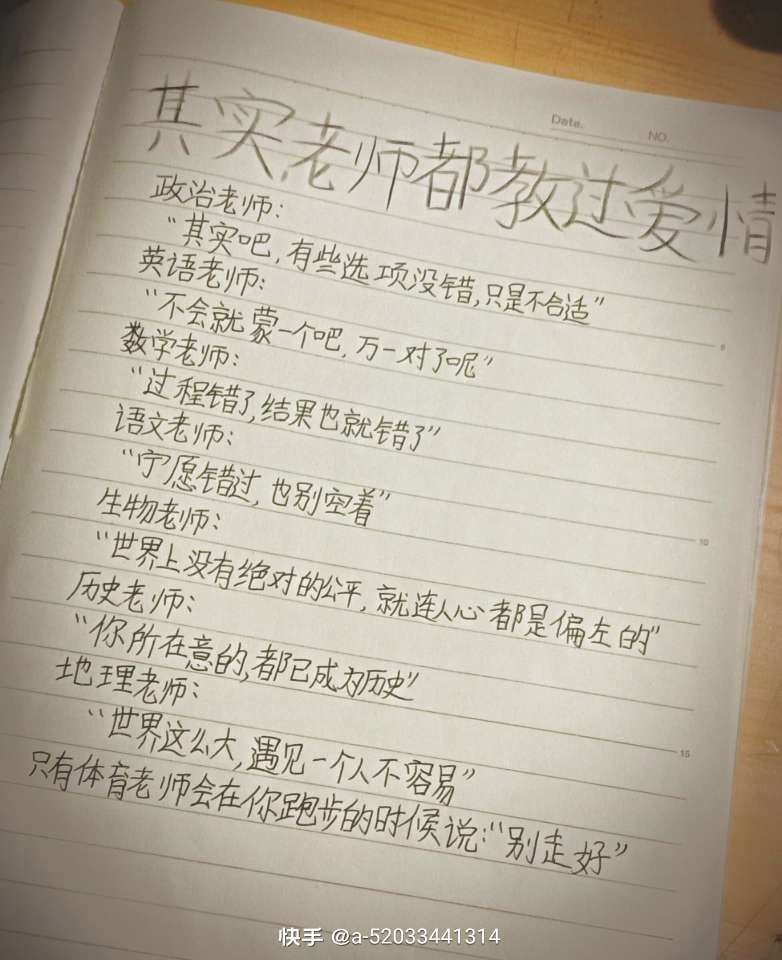 Date.
NO.
其实老师都教过爱情
政治老师：
“其实吧，有些选项没错，只是不合适”
英语老师：
“不会就蒙一个吧，万一对了呢”
5
数学老师：
“过程错了，结果也就错了”
语文老师：
“宁愿错过，也别空着”
10
生物老师：
“世界上没有绝对的公平，就连人心都是偏左的”
历史老师：
“你所在意的，都已成为历史”
地理老师：
15
“世界这么大，遇见一个人不容易”
只有体育老师会在你跑步的时候说：“别走好”
快手 @a-52033441314